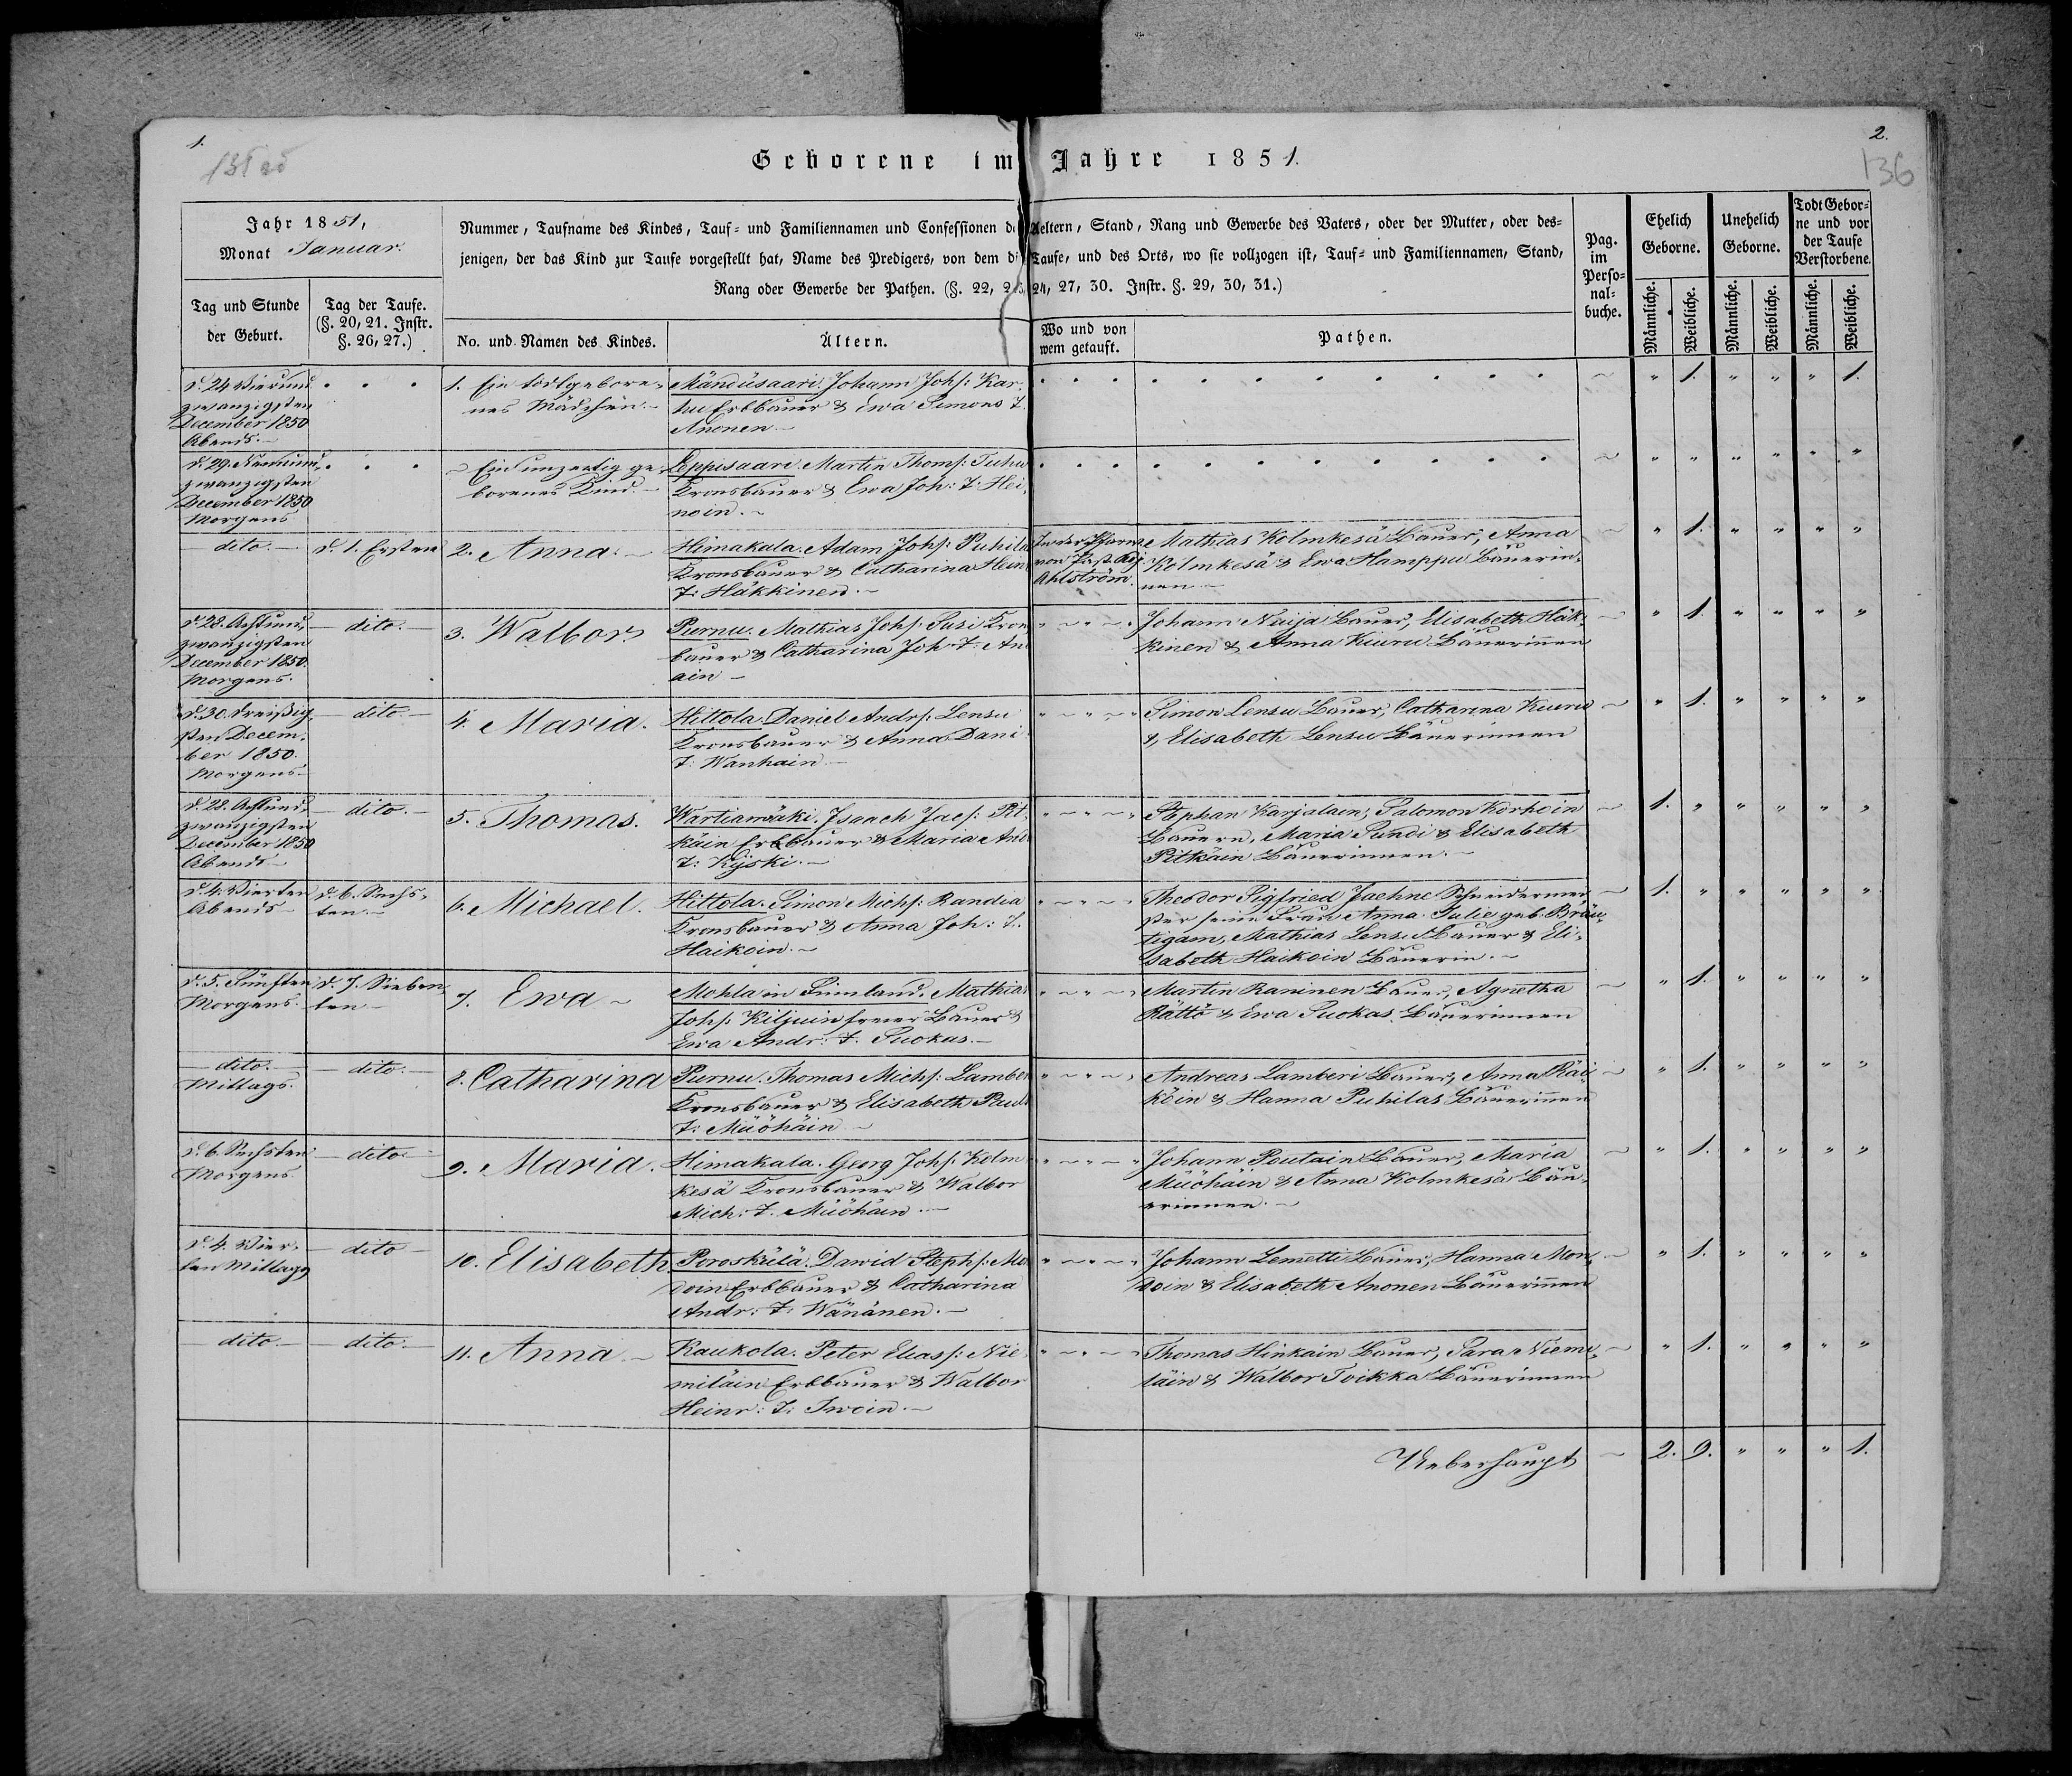 1.
2.
136
Geborene im Jahre 1851.
Jahr 1851,
Monat Januar.
Nummer, Taufname des Kindes, Tauf- und Familiennamen und Confessionen d Aeltern, Stand, Rang und Gewerbe des Vaters, oder der Mutter, oder des-
jenigen, der das Kind zur Taufe vorgestellt hat, Name des Predigers, von dem di Taufe, und des Orts, wo sie vollzogen ist, Tauf- und Familiennamen, Stand,
Rang oder Gewerbe der Pathen. (§. 22, 23, 24, 27, 30. Instr. §. 29, 30, 31.)
Pag.
im
Perso-
nal-
buche.
Ehelich
Geborne.
Unehelich
Geborne.
Todt Gebor-
ne und vor
der Taufe
Verstorbene.
Tag und Stunde
der Geburt.
Tag der Taufe.
(§. 20, 21. Instr.
§. 26, 27.)
No. und Namen des Kindes.
Ältern.
Wo und von
wem getauft.
Pathen.
Männliche.
Weibliche.
Männliche.
Weibliche.
Männliche.
Weibliche.
d. 24. Vierund
zwanzigsten
December 1850
Abends.
1. Ein todtgebore-
nes Mädchen.
Mändüsaari. Johann Johs: Kar-
hu Erbbauer & Ewa Simons T.
Anonen
" 1. " " " 1.
d. 29. Neunund
zwanzigsten
December 1850
Morgens
Ein unzeitig ge-
borenes Kind.
Eppisaari. Martin Thoms: Tuhu
Kronsbauer & Ewa Joh: T: Hei-
noin.
" " " " " "
dito.
d. 1. Ersten
2. Anna.
Himakala. Adam Johs: Puhila
Kronsbauer & Catharina Hein
T: Häkkinen.
In der Pfarre
von Past. Adj.
Ahlström.
Mathias Kolmkesä Bauer, Anna
Kolmkesä & Ewa Hamppu Bäuerin-
nen
" 1. " " " "
d. 28. Achtund
zwanzigsten
December 1850.
Morgens.
dito.
3. Walbor
Purnu. Mathias Johs: Susi Kron
bauer & Catharina Joh: T: An
ain
Johann Naija Bauer, Elisabeth Häk-
kinen & Anna Kiuru Bäuerinnen
" 1. " " " "
d. 30. Dreißig
sten Decem-
ber 1850.
Morgens
dito.
4. Maria.
Hittola. Daniel Andrs: Lensu
Kronsbauer & Anna Dani
T: Wanhain
Simon Lensu Bauer, Catharina Kiuru
& Elisabeth Lensu Bäuerinnen
" 1. " " " "
d. 28. Achtund
zwanzigsten
December 1850
Abends
dito.
5. Thomas.
Wärtiamäki. Isaach Jacs: Pit-
käin Erbbauer & Maria And
T: Kyski.
Stephan Karjalain, Salomon Korhoin
Bauern, Maria Sundi & Elisabeth
Pitkäin Bäuerinnen.
1. " " " " "
d. 4. Vierten
Abends
d. 6. Sechs-
ten.
6. Michael.
Hittola. Simon Michs: Randia
Kronsbauer & Anna Joh: T.
Haikoin.
Theodor Sigfried Jaehne Schneidermei-
ster seine Frau Anna Julie geb. Bräu-
tigam, Mathias Lensu Bauer & Eli-
sabeth Haikoin Bäuerin.
1. " " " " "
d. 5. Fünften
Morgens.
d. 7. Sieben-
ten
7. Ewa
Mohla in Finnland. Mathias
Johs: Kiljuin freier Bauer &
Ewa Andr: T. Puokas.
Martin Raninen Bauer, Agnetha
Rättö & Ewa Puokas Bäuerinnen
" 1. " " " "
dito.
Mittags.
dito.
8. Catharina
Purnu. Thomas Michs: Lamber
Kronsbauer & Elisabeth Paul
T: Müöhäin
Andreas Lamberi Bauer, Anna Räi-
köin & Hanna Puhilas Bäuerinnen
" 1. " " " "
d. 6. Sechsten
Morgens.
dito
9. Maria.
Himakala. Georg Johs: Kolm
kesä Kronsbauer & Walbor
Mich: T. Müöhäin.
Johann Poutain Bauer, Maria
Müöhäin & Anna Kolmkesä Bäu-
erinnen.
" 1. " " " "
d. 4. Vier-
ten Mittags
dito
10. Elisabeth.
Poroskülä. Dawid Stephs: Mo
Erbbauer & Catharina
Andr: T: Wänänen.
Johann Lemetti Bauer, Hanna Mon-
& Elisabeth Anonen Bäuerinnen
" 1. " " " "
dito.
dito.
11. Anna
Kaukola. Peter Elias s: Nie
miläin Erbbauer & Walbor
Heinr: T: Iwoin.
Thomas Hinkain Bauer, Sara Niemi-
läin & Walbor Toikka Bäuerinnen
" 1. " " " "
Ueberhaupt
2. 9. " " " 1.